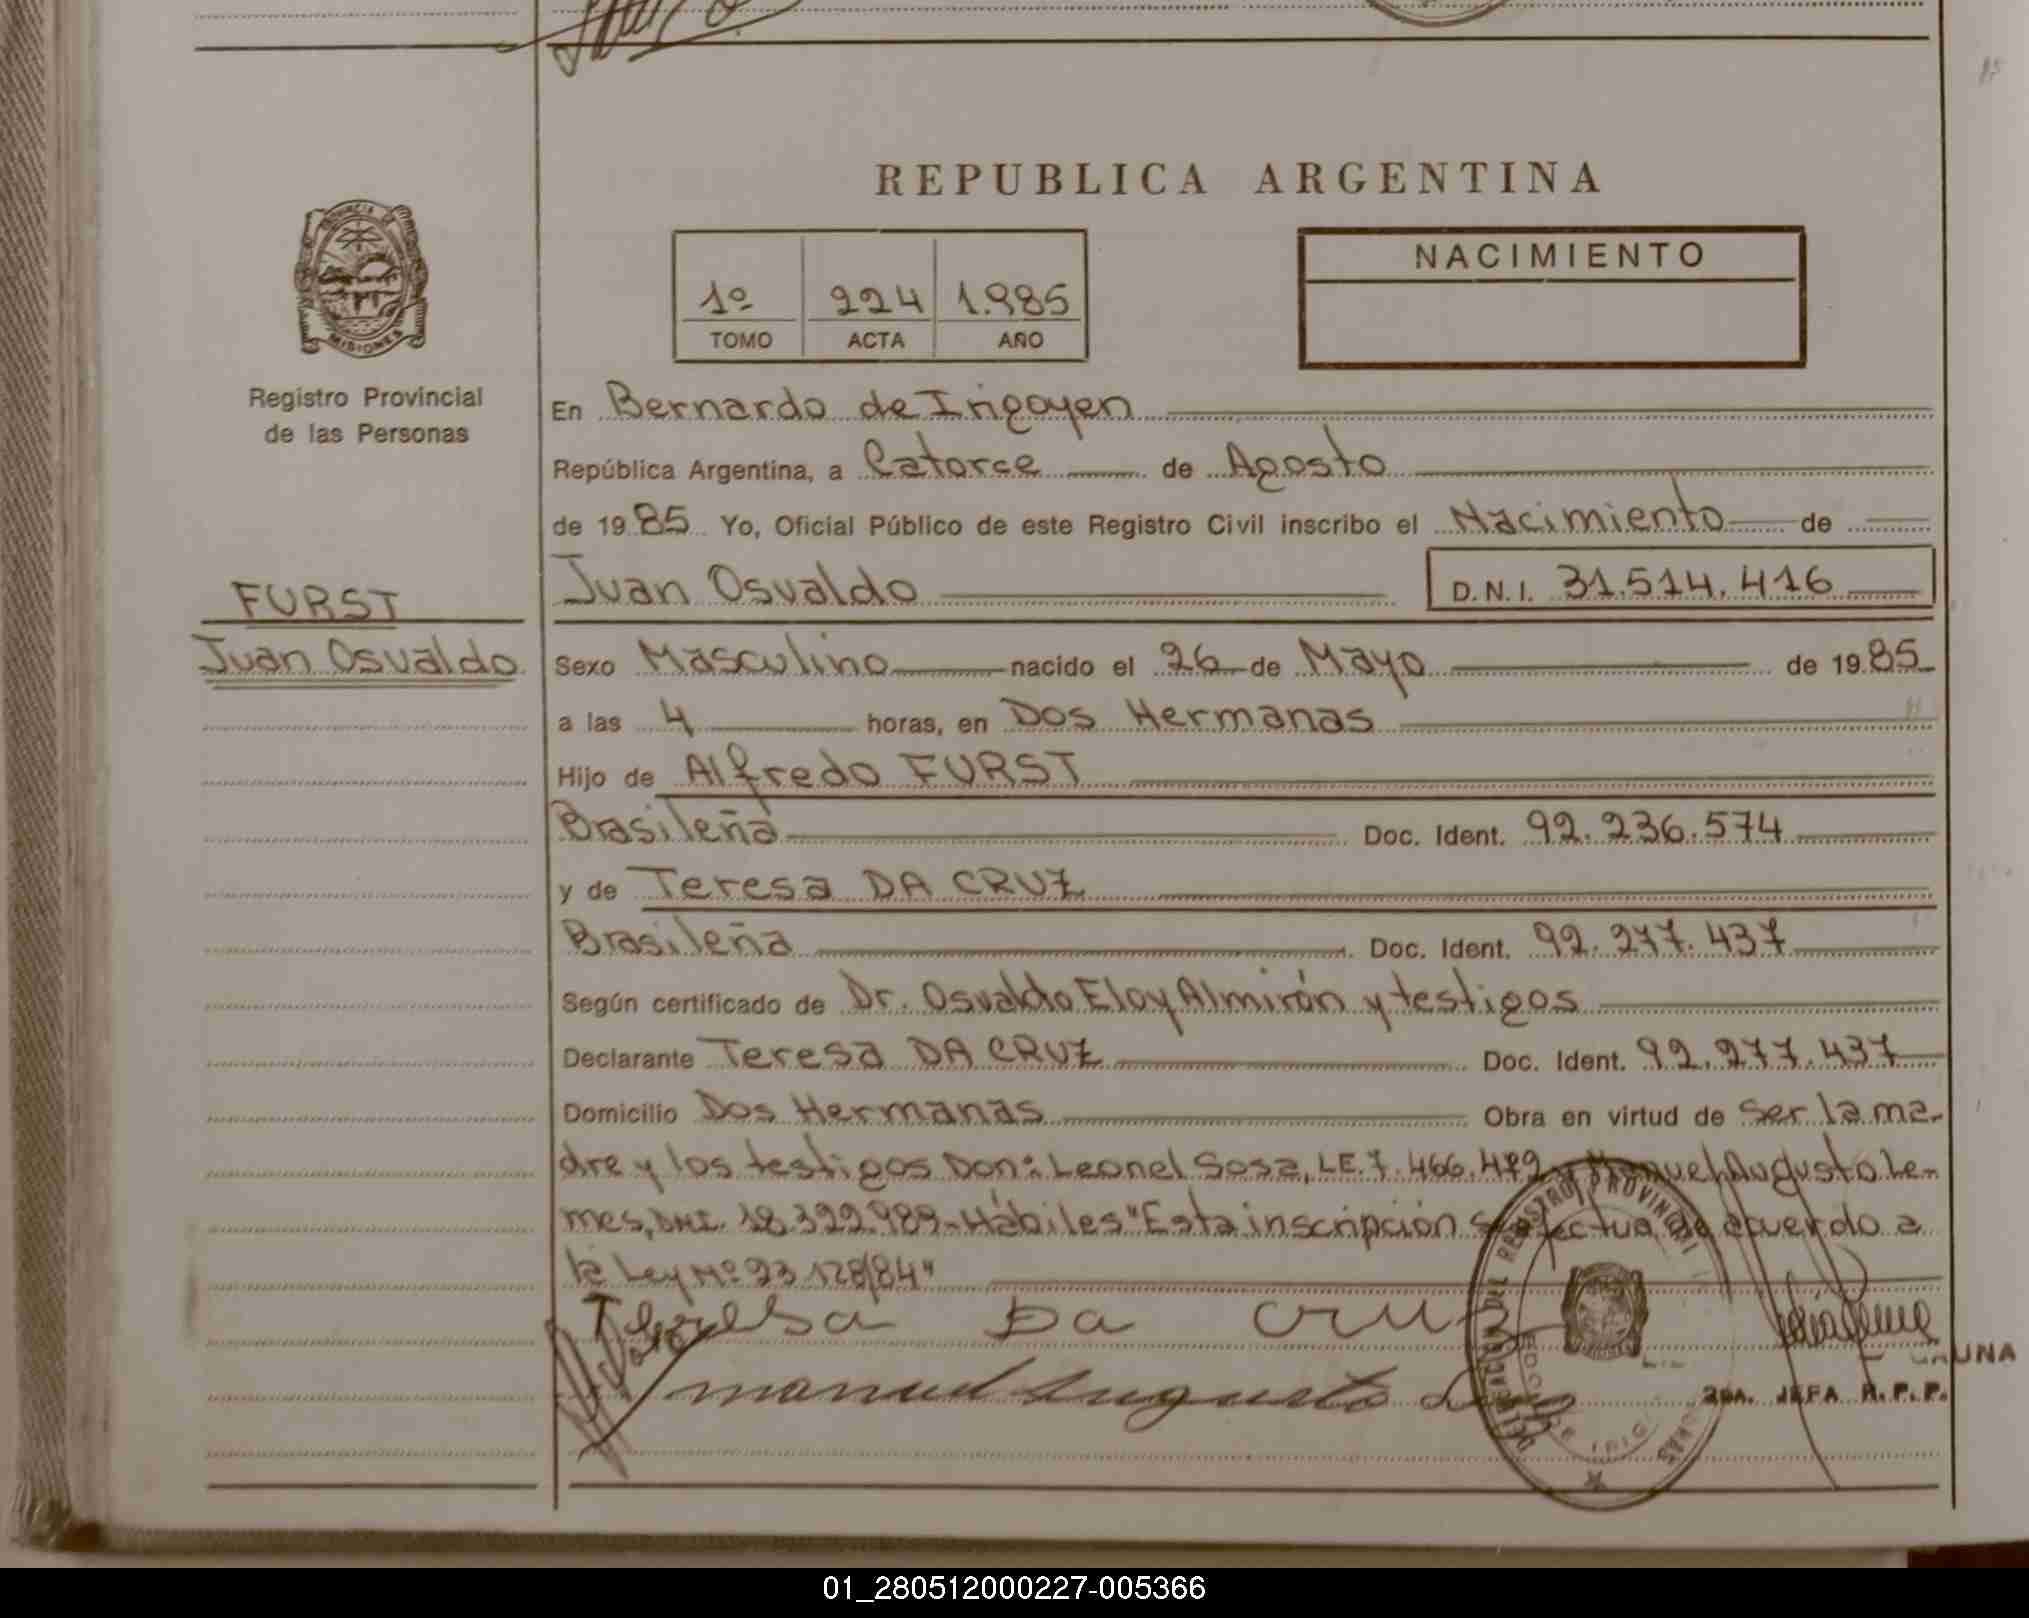 REPUBLICA ARGENTINA
PROVINCIA DE MISIONES
1º 224 1.985
TOMO ACTA AÑO
NACIMIENTO
Registro Provincial
de las Personas
En Bernardo de Irigoyen
República Argentina, a Catorse de Agosto
de 1985 Yo, Oficial Público de este Registro Civil inscribo el Nacimiento de
FURST
Juan Osvaldo
Juan Osvaldo D.N.I. 31.514.416
Sexo Masculino nacido el 26 de Mayo de 1985
a las 4 horas, en Dos Hermanas
Hijo de Alfredo FURST
Brasileña Doc. Ident. 92.236.574
y de Teresa DA CRUZ
Brasileña Doc. Ident. 92.277.437
Según certificado de Dr. Osvaldo Eloy Almirón y testigos
Declarante Teresa DA CRUZ Doc. Ident. 92.277.437
Domicilio Dos Hermanas Obra en virtud de ser la ma-
dre y los testigos Don: Leonel Sosa, LE. 7.466.479 y Manuel Augusto Le-
mes, DNI. 18.322.989- Hábiles "Esta inscripción se efectua de acuerdo a
la Ley Nº 23.128/84"
Teresa Da Cruz
manuel Augusto
2DA. JEFA R.P.P.
DEL REGISTRO PROVINCIAL
01_280512000227-005366